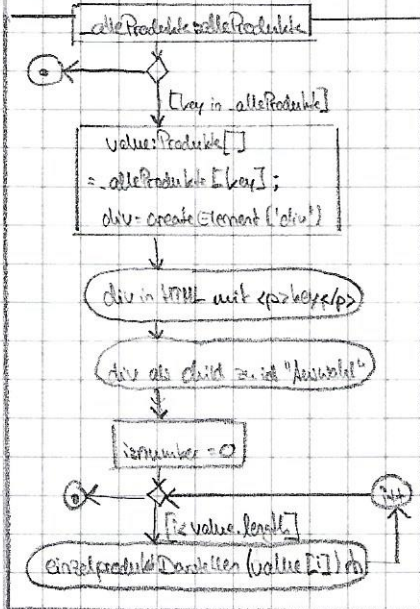 _alleProdukte=alleProdukte
[key in _alleProdukte]
value:Produkte[]
= _alleProdukte[key];
div=createElement('div')
div in HTML mit <p>key</p>
div als child zu id "Auswahl"
i:number = 0
i++
[i<value.length]
einzelproduktDarstellen(value[i])